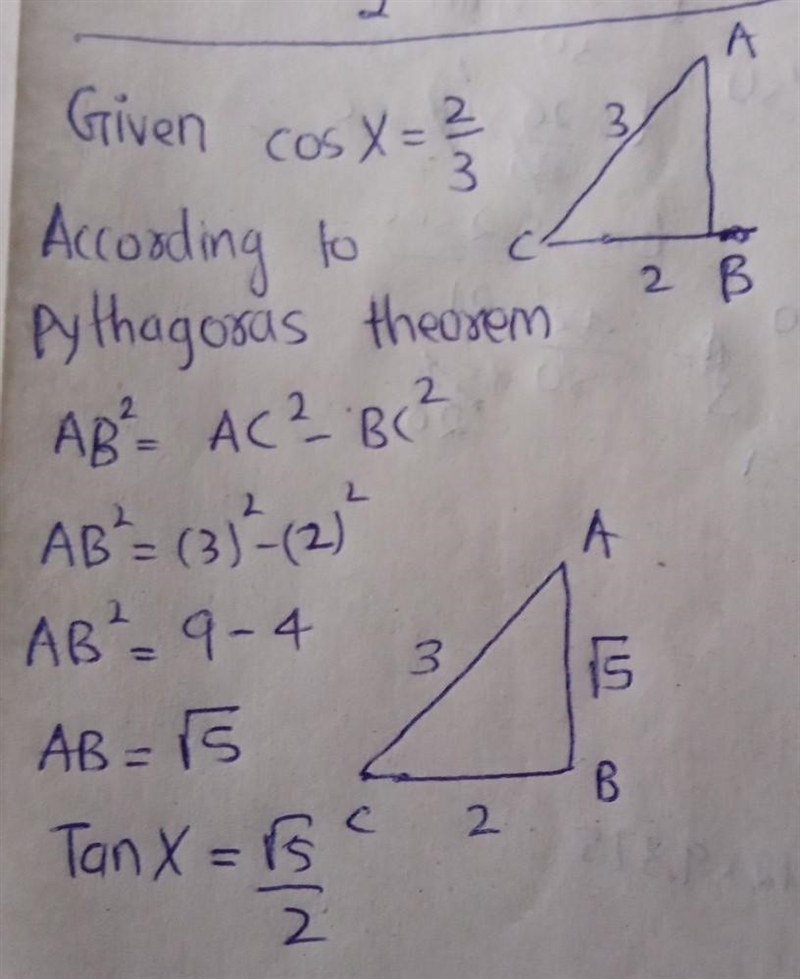 Given cos X = 2/3
A
3
C
2 B
According to
Pythagoras theorem
AB² = AC² - BC²
AB² = (3)² - (2)²
AB² = 9 - 4
AB = √5
A
3
√5
B
C
2
Tan X = √5/2